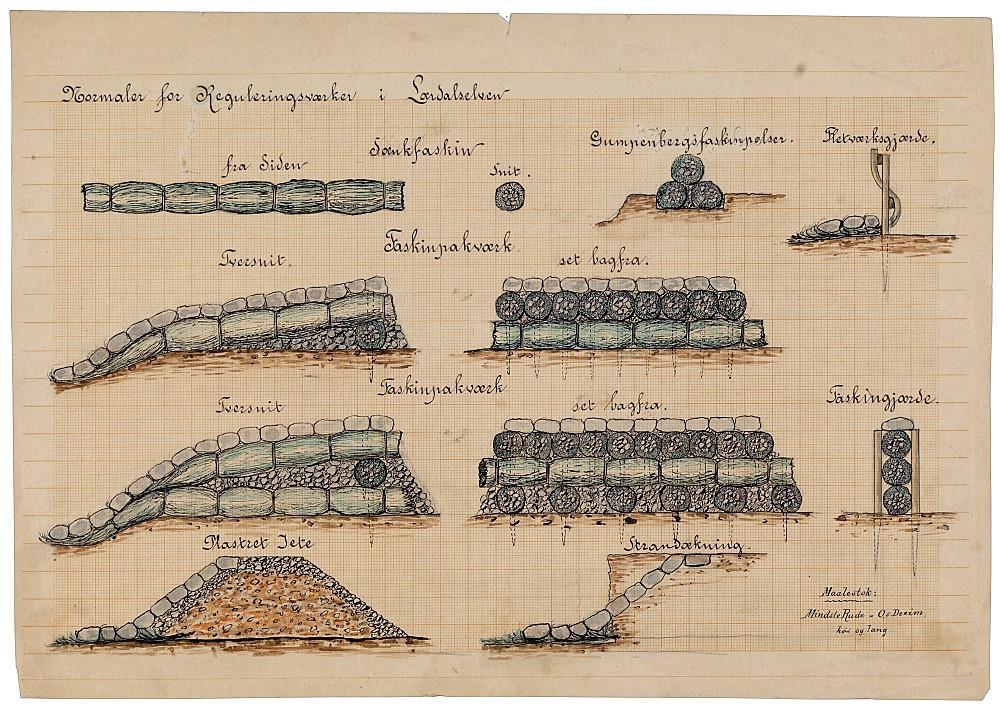 Normaler for Reguleringsværker i Lærdalselven
Sænkfaskin
fra Siden
Snit.
Gumpenbergsfaskinpølser.
Fletværksgjærde.
Faskinpakværk
Tversnit.
set bagfra.
Faskinpakværk
Tversnit
set bagfra.
Faskingjærde.
Plastret Jete
Strandækning.
Maalestok:
Mindste Rude = Decim.
høi og lang